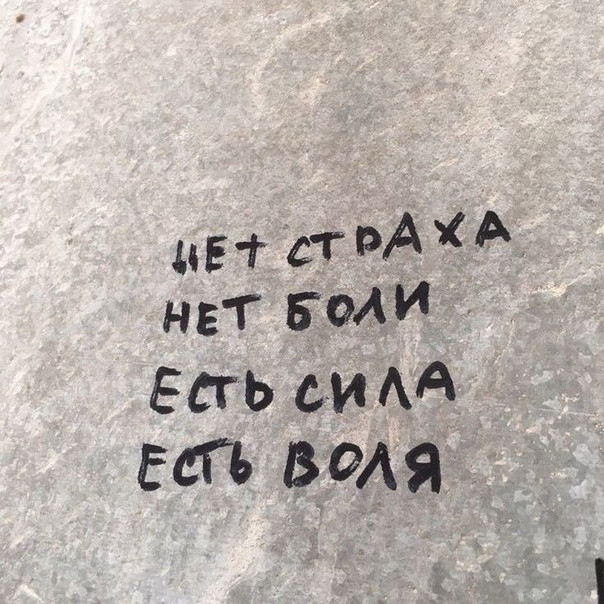 НЕТ СТРАХА
НЕТ БОЛИ
ЕСТЬ СИЛА
ЕСТЬ ВОЛЯ